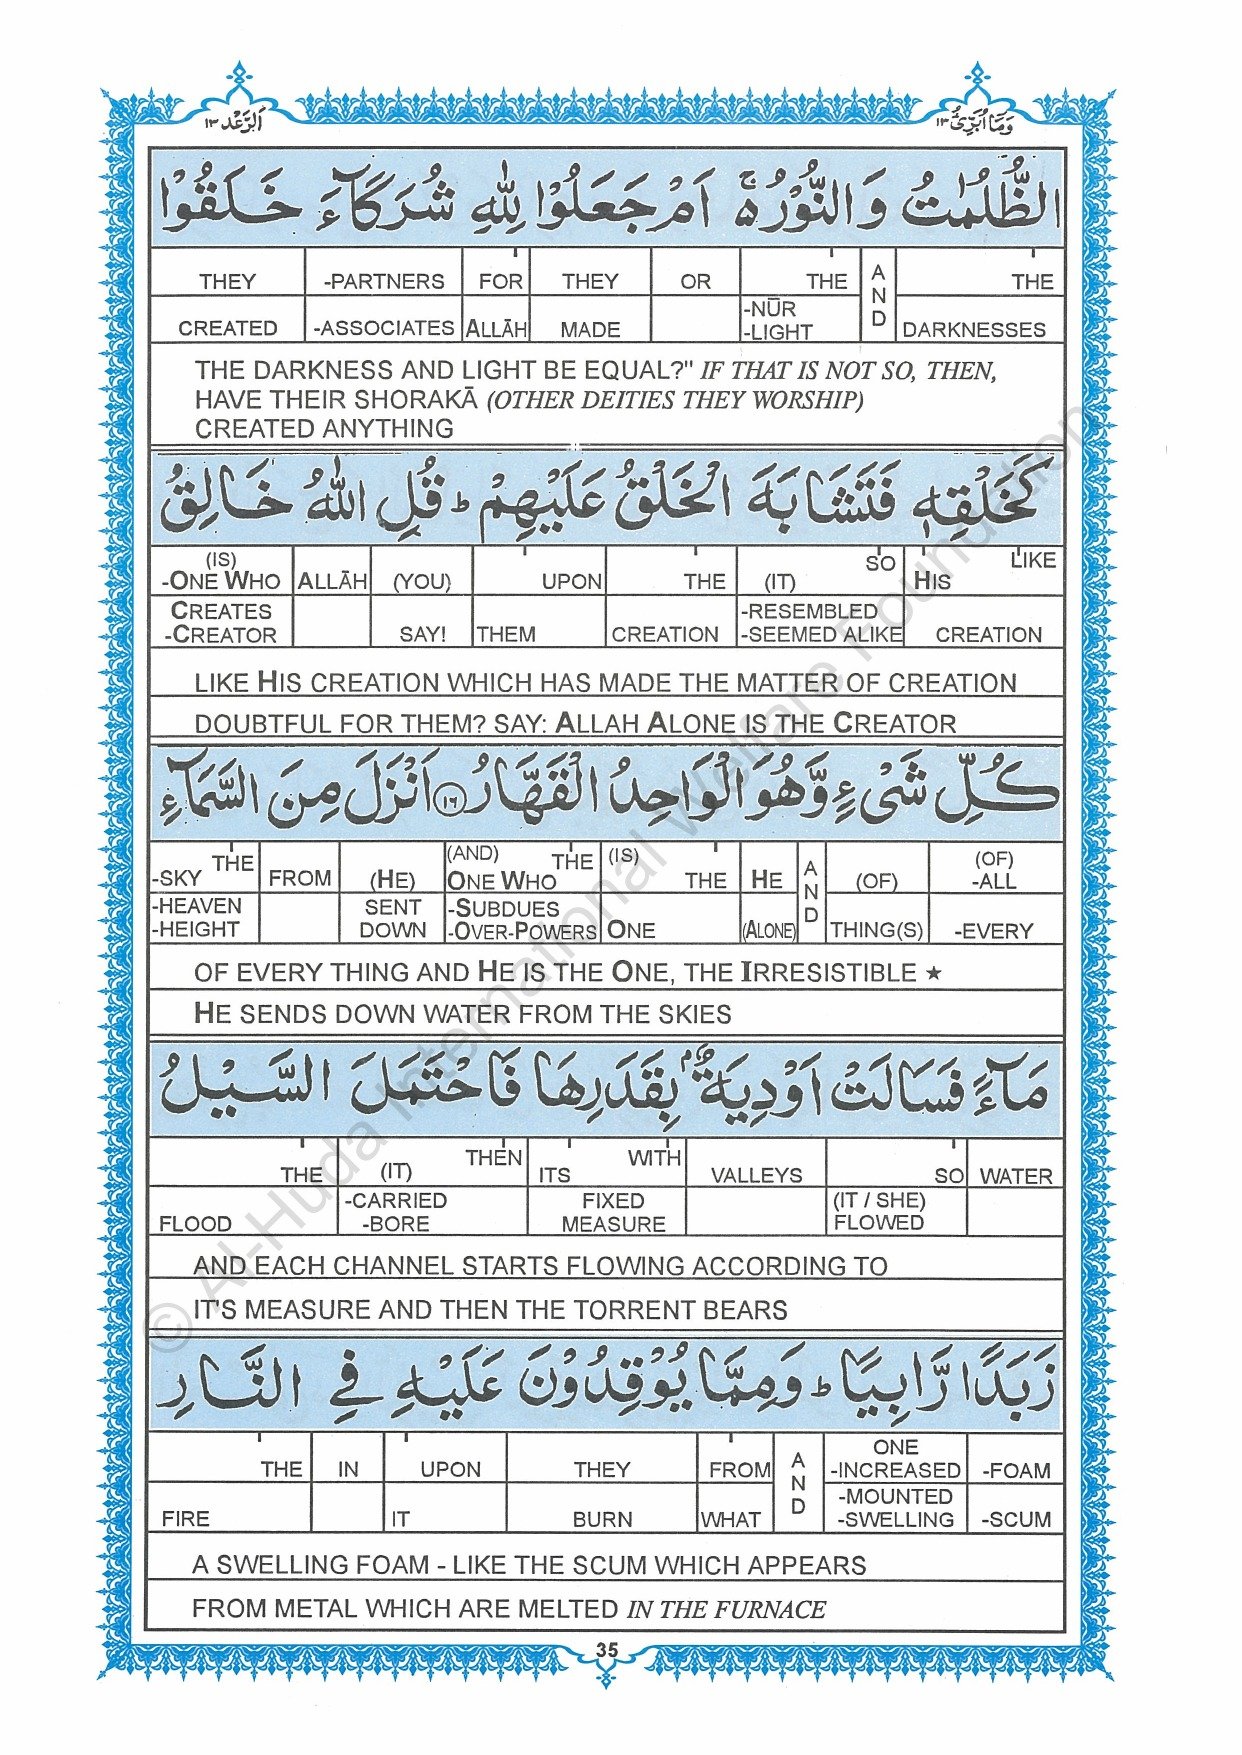 وَمَآ اُبَرِّئُ ١٣
اَلرَّعْد ١٣
الظُّلُمٰتُ وَالنُّوْرُ ۚ اَمْ جَعَلُوْا لِلّٰهِ شُرَكَآءَ خَلَقُوْا
THEY -PARTNERS FOR THEY OR THE AND THE
CREATED -ASSOCIATES ALLĀH MADE -NŪR -LIGHT DARKNESSES
THE DARKNESS AND LIGHT BE EQUAL?" IF THAT IS NOT SO, THEN,
HAVE THEIR SHORAKĀ (OTHER DEITIES THEY WORSHIP)
CREATED ANYTHING
كَخَلْقِهٖ فَتَشَابَهَ الْخَلْقُ عَلَيْهِمْ ؕ قُلِ اللّٰهُ خَالِقُ
(IS) -ONE WHO ALLĀH (YOU) UPON THE (IT) SO HIS LIKE
CREATES -CREATOR SAY! THEM CREATION -RESEMBLED -SEEMED ALIKE CREATION
LIKE HIS CREATION WHICH HAS MADE THE MATTER OF CREATION
DOUBTFUL FOR THEM? SAY: ALLAH ALONE IS THE CREATOR
كُلِّ شَيْءٍ وَّهُوَ الْوَاحِدُ الْقَهَّارُ ١٦ اَنْزَلَ مِنَ السَّمَآءِ
-SKY THE FROM (HE) (AND) THE ONE WHO (IS) THE HE AND (OF) (OF) -ALL
-HEAVEN -HEIGHT SENT DOWN -SUBDUES -OVER-POWERS ONE (ALONE) THING(S) -EVERY
OF EVERY THING AND HE IS THE ONE, THE IRRESISTIBLE ★
HE SENDS DOWN WATER FROM THE SKIES
مَآءً فَسَالَتْ اَوْدِيَةٌۢ بِقَدَرِهَا فَاحْتَمَلَ السَّيْلُ
THE (IT) THEN ITS WITH VALLEYS SO WATER
FLOOD -CARRIED -BORE FIXED MEASURE (IT / SHE) FLOWED
AND EACH CHANNEL STARTS FLOWING ACCORDING TO
IT'S MEASURE AND THEN THE TORRENT BEARS
زَبَدًا رَّابِيًا ؕ وَمِمَّا يُوْقِدُوْنَ عَلَيْهِ فِي النَّارِ
THE IN UPON THEY FROM AND ONE -INCREASED -FOAM
FIRE IT BURN WHAT -MOUNTED -SWELLING -SCUM
A SWELLING FOAM - LIKE THE SCUM WHICH APPEARS
FROM METAL WHICH ARE MELTED IN THE FURNACE
35
© Al-Huda International Welfare Foundation